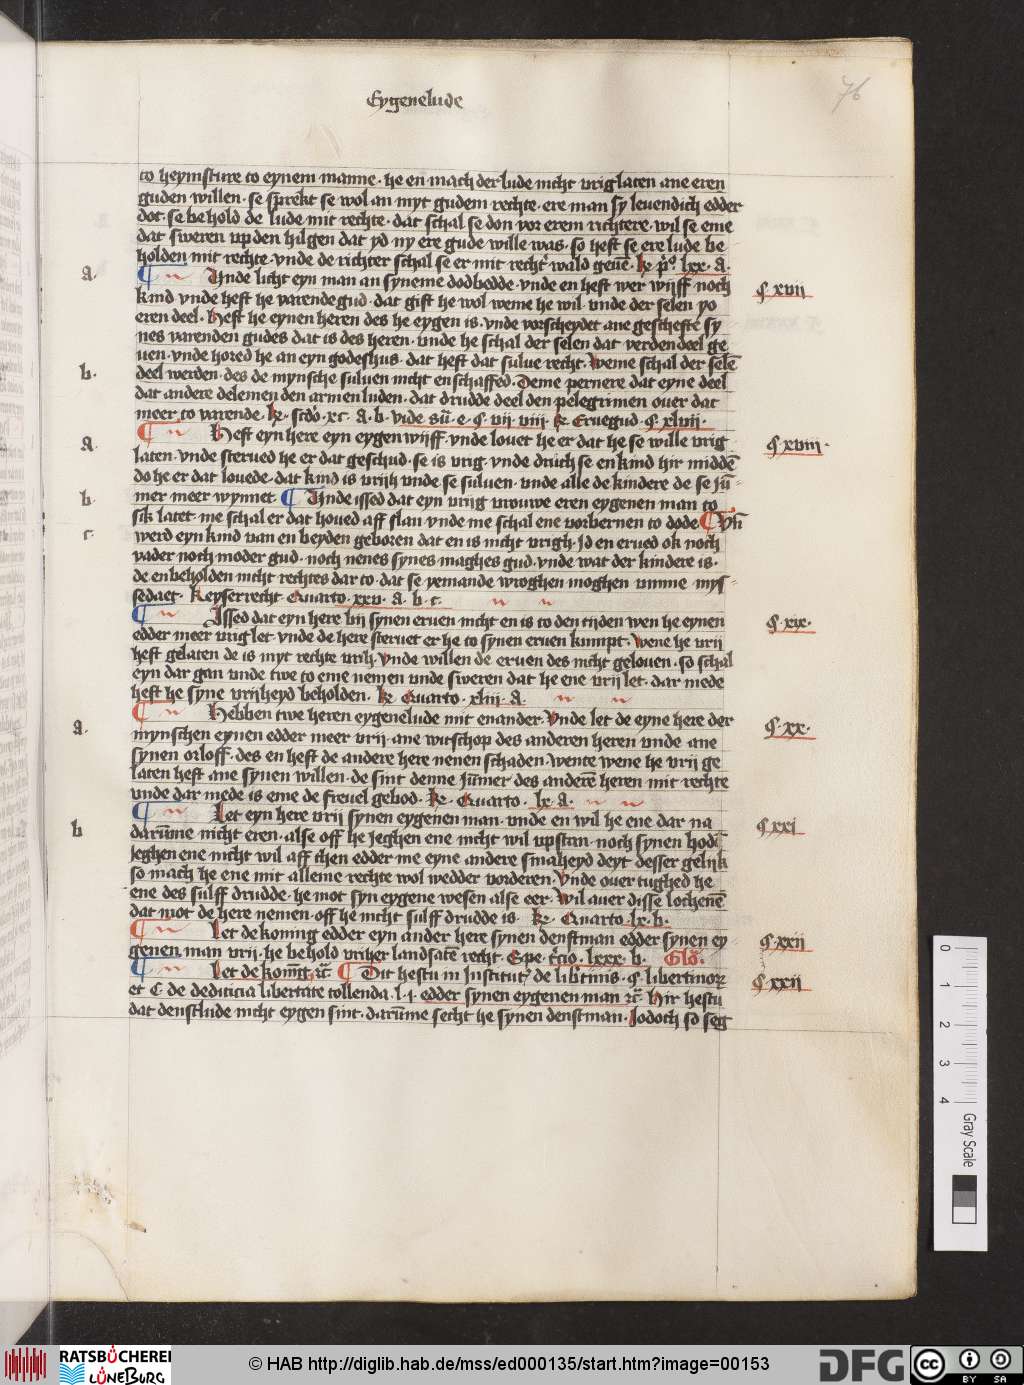 Eygenelude
76
to heymsture to eynem manne · he en mach der lude nicht vrig laten ane eren
guden willen · se sprekt se wol an myt gudem rechte · ere man sy leuendich edder
dot · se behold de lude mit rechte · dat schal se don vor erem richtere · wil se eme
dat sweren vp den hilgen dat yd ny ere gude wille was · so heft se ere lude be
holden mit rechte · vnde de richter schal se er mit recht wald geuē · k p° lxx · A.
a. ¶ Unde licht eyn man an syneme dodbedde · vnde en heft wer wijff noch § xvii
kind vnde heft he varende gud · dat gift he wol weme he wil · vnde der selen yo
eren deel · Heft he eynen heren des he eygen is · vnde vorscheydet ane geschefte sy
nes varenden gudes dat is des heren · vnde he schal der selen dat verdendeel ge
uen · vnde hored he an eyn godeshus · dat heft dat sulue recht · Weme schal der selē
b. deel werden · des de mynsche suluen nicht en schaffed · Deme pernere dat eyne deel
dat andere delemen den armen luden · dat drudde deel den pelegrimen ouer dat
meer to varende · k · scdo · xc · A · b · vide · e · § · vii · viii · k Eruegud · § · xlvii ·
a. ¶ Heft eyn here eyn eygen wijff · vnde louet he er dat he se wille vrig § xviii ·
laten · vnde sterued he er dat geschud · se is vrig · vnde druch se en kind hir middē
do he er dat louede · dat kind is vrijh vnde se suluen · vnde alle de kindere de se jū
b. mer meer wynnet · ¶ Unde issed dat eyn vrijg vrouwe eren eygenen man to
sik latet · me schal er dat houed aff slan vnde me schal ene vorbernen to dode ¶ Vn̄
c. werd eyn kind van en beyden geboren dat en is nicht vrigh · Id en erued ok noch
vader noch moder gud · noch nenes synes maghes gud · vnde wat der kindere is ·
de en beholden nicht rechtes dar to · dat se yemande wroghen moghen vmme mys
sedaet · Keyserrecht Quarto · xxv · A · b · c ·
¶ Issed dat eyn here bij synen eruen nicht en is to den tijden wen he eynen § xix ·
edder meer vrig let · vnde de here steruet er he to synen eruen kumpt · Wene he vrij
heft gelaten de is myt rechte vrih · Vnde willen de eruen des nicht gelouen · so schal
eyn dar gan vnde twe to eme nemen vnde sweren dat he ene vrij let · dar mede
heft he syne vrijheyd beholden · k Quarto · xliii · A ·
a. ¶ Hebben twe heren eygenelude mit enander · Vnde let de eyne here der § xx ·
mynschen eynen edder meer vrij · ane witschop des anderen heren vnde ane
synen orloff · des en heft de andere here nenen schaden · Wente wene he vrij ge
laten heft ane synen willen · de sint denne jūmer des anderē heren mit rechte
vnde dar mede is eme de freuel gebod · k · Quarto · lx · A ·
¶ Let eyn here vrij synen eygenen man · vnde en wil he ene dar na § xxi
b darūme nicht eren · alse off he jeghen ene nicht wil vpstan · noch synen hod
jeghen ene nicht wil aff then edder me eyne andere smaheyd deyt desser gelijk
so mach he ene mit alleme rechte wol wedder vorderen · Vnde ouer tughed he
ene des sulff drudde · he mot syn eygene wesen alse eer · Wil auer disse lochenē
dat mot de here nemen · off he nicht sulff drudde is · k · Quarto · lx · b ·
¶ Let de koning edder eyn ander here synen denstman edder synen ey § xxii
genen man vrij · he behold vriher landsatē recht · Spe · t̄cio · lxxx · b · Glo ·
¶ Let de konīg ꝛc̄ ¶ Dit hestu in Institut' de lib'tinis · § · libertinorꝝ § xxii
et C de dediticia libertate tollenda · l · j · edder synen eygenen man ꝛc̄ · Hir hestu
dat denstlude nicht eygen sint · darūme secht he synen denstman · Jodoch so seg
0
1
2
3
4
Gray Scale
RATSBÜCHEREI
LÜNEBURG
© HAB http://diglib.hab.de/mss/ed000135/start.htm?image=00153
DFG
cc
BY SA